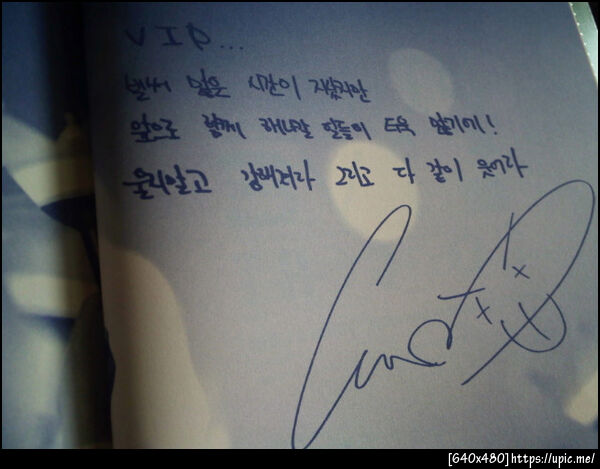 VIP...
벌써 많은 시간이 지났지만
앞으로 함께 해나갈 날들이 더욱 많기에!
울지말고 강해져라 그리고 다 같이 웃어라
[640x480]https://upic.me/